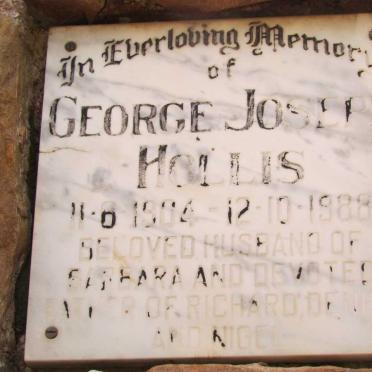 In Everloving Memory
of
GEORGE JOSEPH
HOLLIS
11-8 1904 - 12-10-1988
BELOVED HUSBAND OF
BARBARA AND DEVOTED
FATHER OF RICHARD, DENIS
AND NIGEL